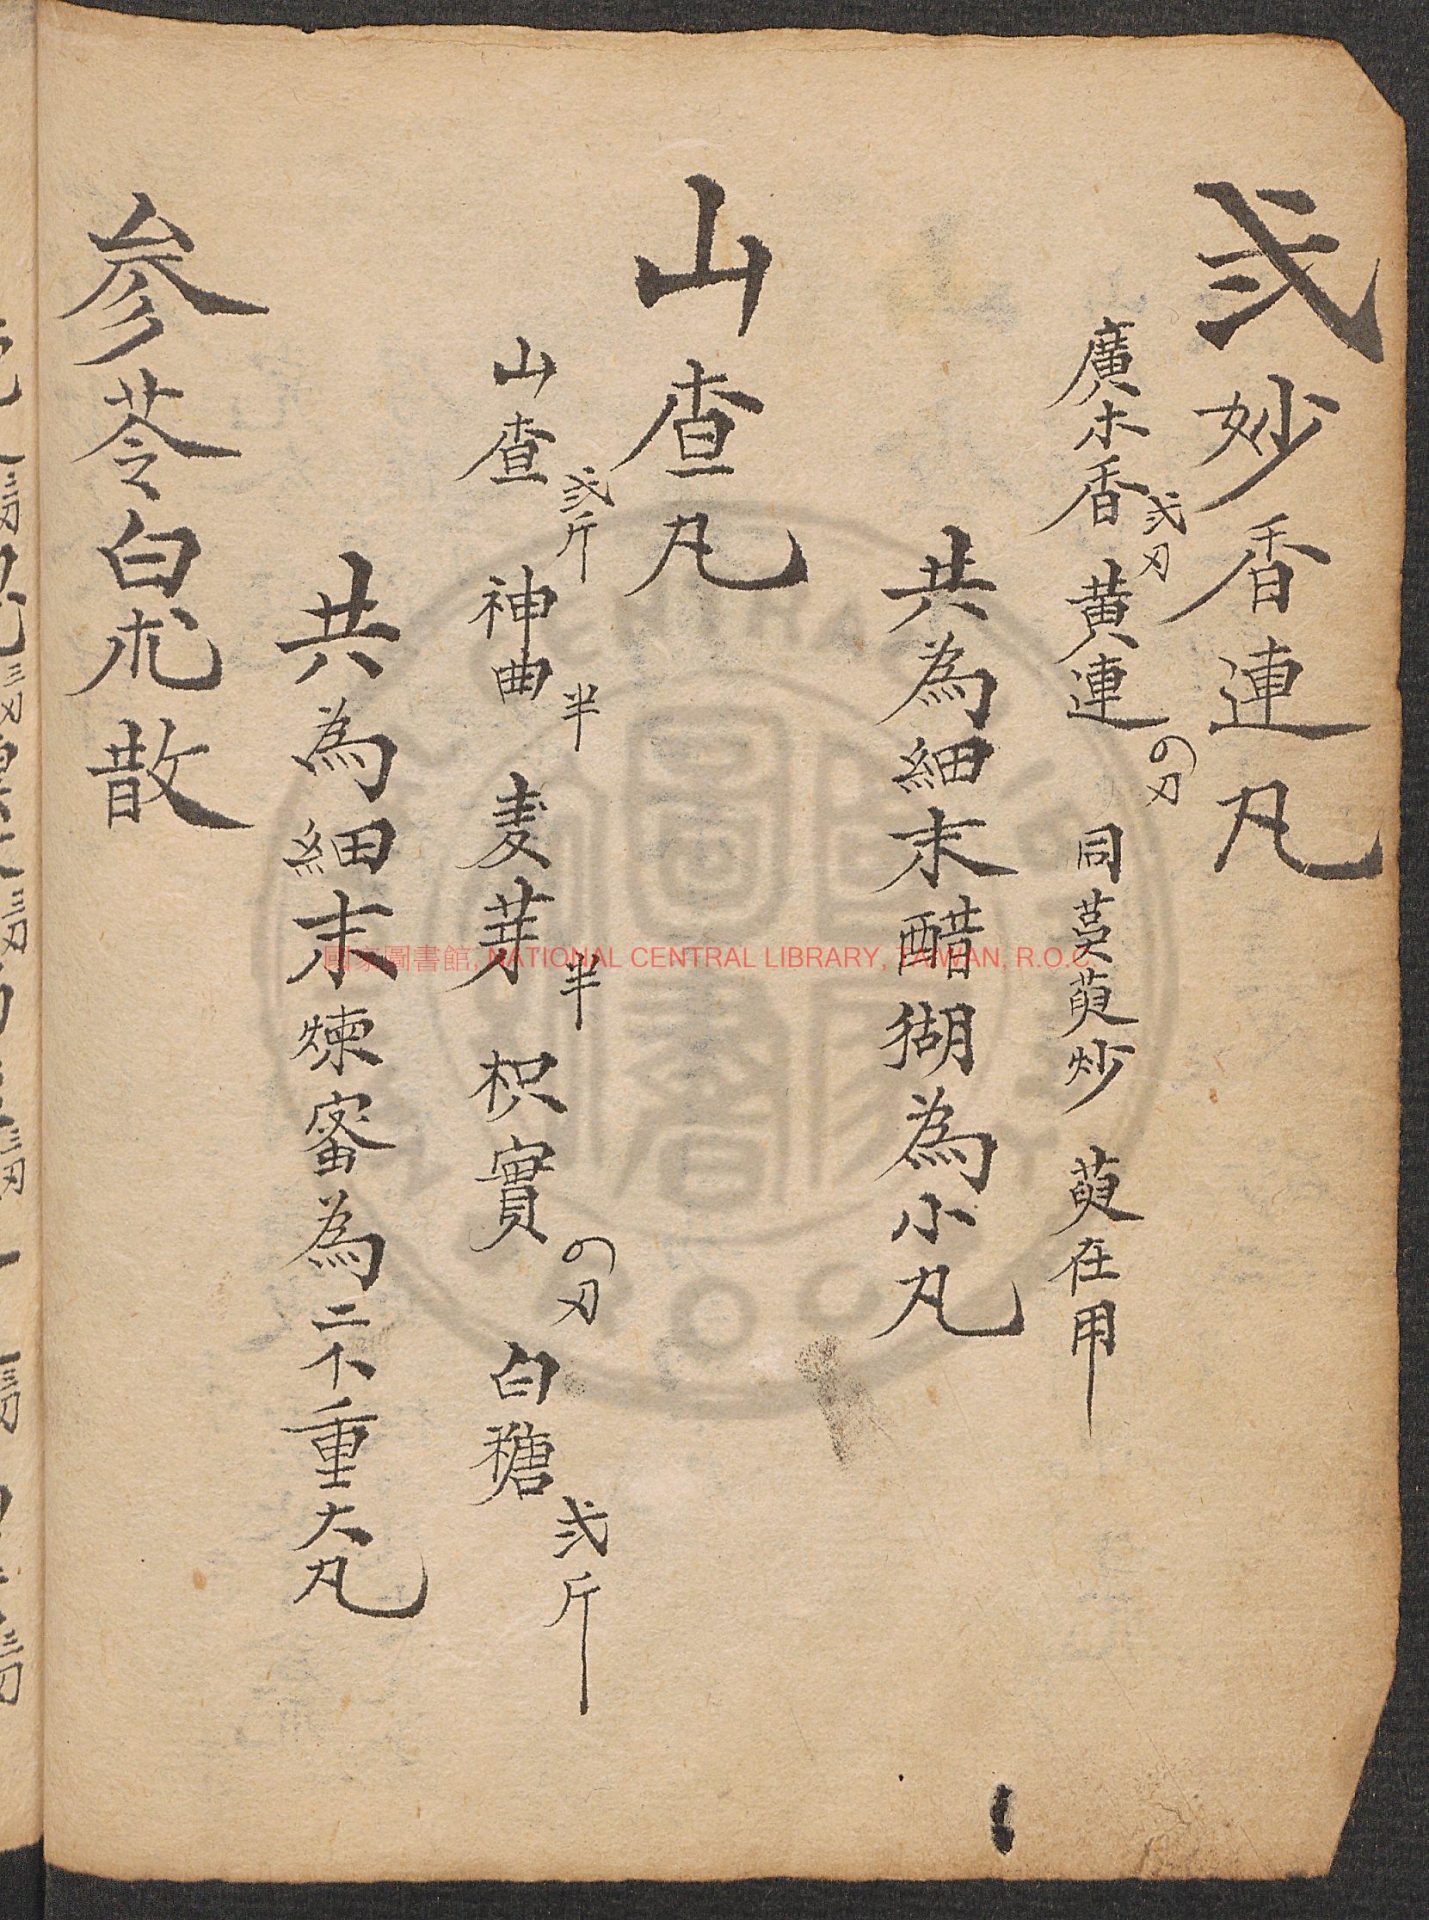 弍妙香連凡
廣木香弍刃 黄連の刃 同萸萸炒 萸在用
共為細末醋猢為小丸
山查凡
山查弍斤 神曲半 麦芽半 枳實の刃 白糖弍斤
共為細末煉蜜為二不重大丸
参苓白朮散
國家圖書館, NATIONAL CENTRAL LIBRARY, TAIWAN, R.O.C.